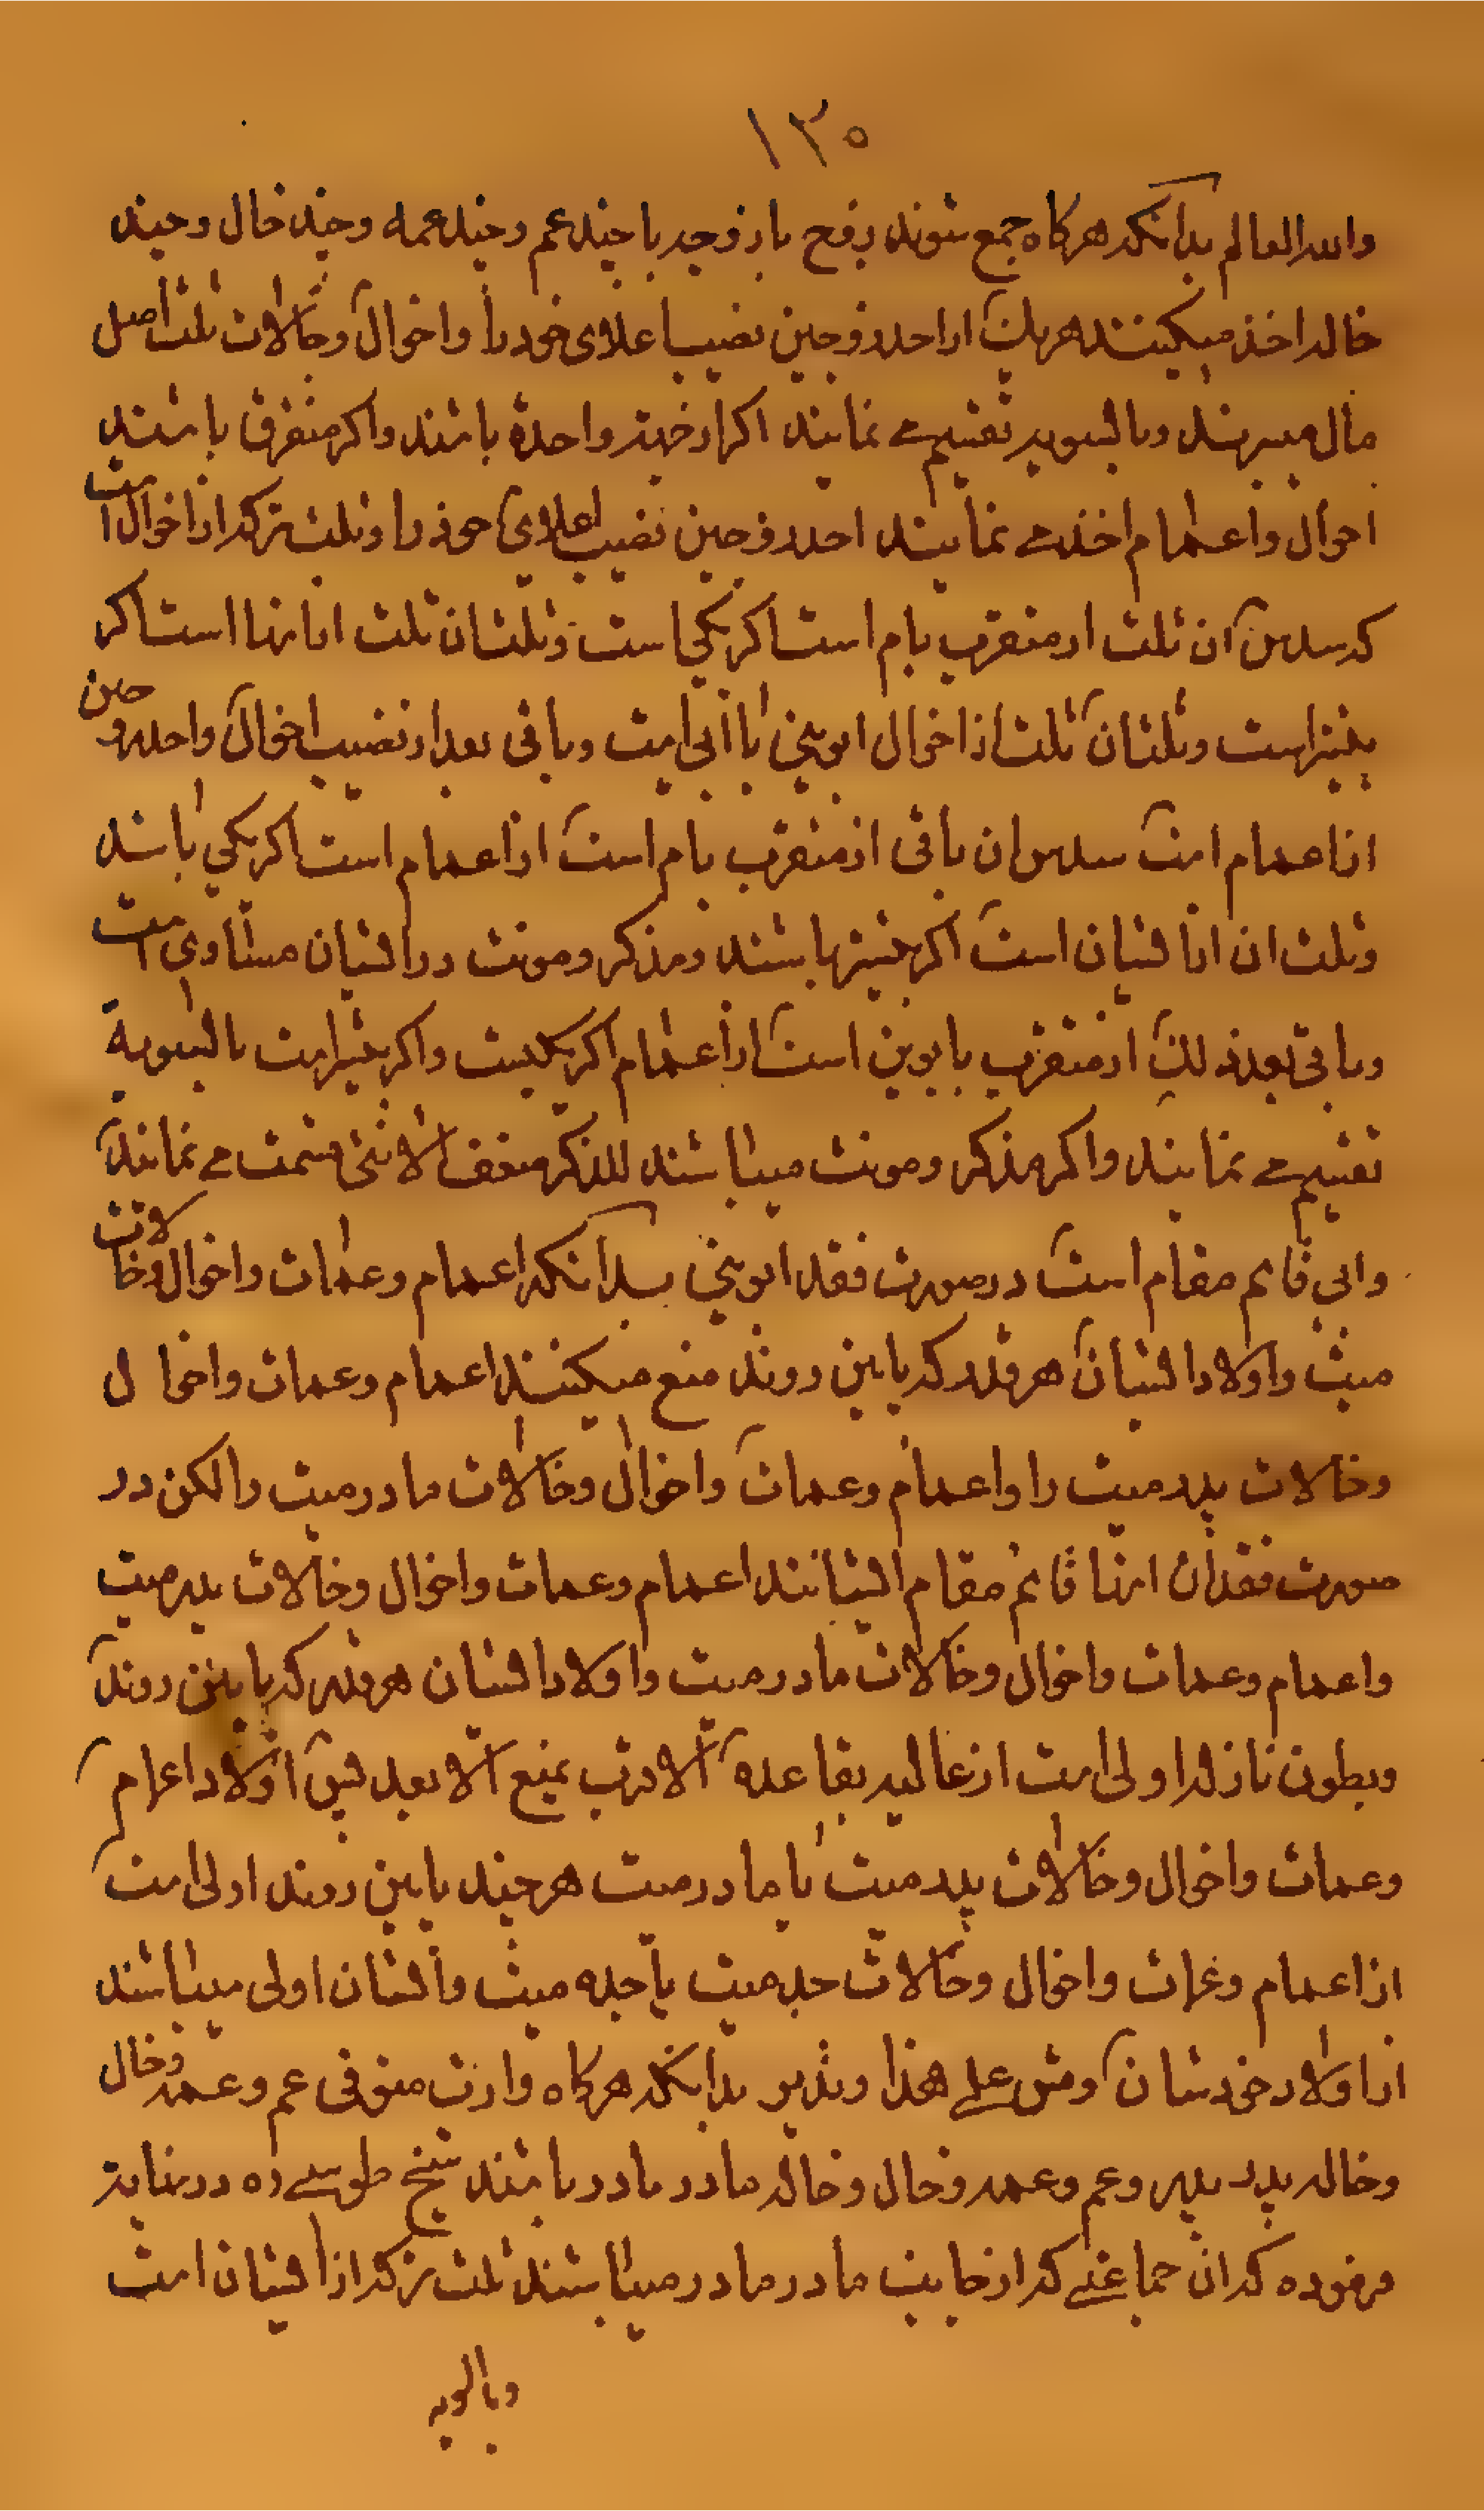 ١٣٥
والله العالم بدانکه هرکاه جمع شوند زوج یا زوجه با چند عم و چند عمه و چند خال و چند
خاله اخذ میکینند هریک از احد زوجین نصیب اعلای خود را و اخوال و خالات ثلث اصل
مال میبرند و بالسویه تقسیم می نمایند اکر از جهة واحدة باشند و اکر متفرق باشند
اخوال و اعمام اخذ می نمایند احد زوجین نصیب اعلای خود را و ثلث ترکه از اخوال است
که سدس آن ثلث از متقرب بام است اکر یکی است و ثلث ان ثلث از انها است اکر
بیشتر است و ثلثان ثلث از اخوال ابوینی یا ابی است و باقی بعد از نصیب اخوال و احد زوجین
از اعمام است سدس ان باقی از متقرب بام است از اعمام است اکر یکی باشد
و ثلث ان از ایشان است اکر بیشتر باشند و مذکر و مونث در ایشان مساوی است
و باقی بعد ذلک از متقرب بابوین است از اعمام اکر یکیست و اکر بیشتر است بالسویة
تقسیم می نمایند و اکر مذکر و مونث میباشند للذکر ضعف الانثی قسمت می نمایند
و ابی قایم مقام است در صورت فقد ابوینی بدانکه اعمام و عمات و اخوال و خالات
میت و اولاد ایشان هر قدر که پایین روند منع میکنند اعمام و عمات و اخوال
و خالات پدر میت را و اعمام و عمات و اخوال و خالات مادر میت را لکن در
صورت فقدان اینها قایم مقام ایشانند اعمام و عمات و اخوال و خالات پدر میت
و اعمام و عمات و اخوال و خالات مادر میت و اولاد ایشان هر قدر که پایین روند
و بطون نازله اولی است از عالیه بقاعده الاقرب یمنع الابعد پس اولاد اعمام
و عمات و اخوال و خالات پدر میت یا مادر میت هر چند پایین روند اولی است
از اعمام و عمات و اخوال و خالات جد میت یا جده میت و ایشان اولی میباشند
از اولاد خودشان و قس علی هذا و تدبر بدانکه هرکاه وارث متوفی عم و عمه و خال
و خاله پدر پدر و عم و عمه و خال و خاله مادر مادر باشند شیخ طوسی ره در نهایة
فرموده که ان جماعتی که از جانب مادر مادر میباشند ثلث ترکه از ایشان است
و بالسویه